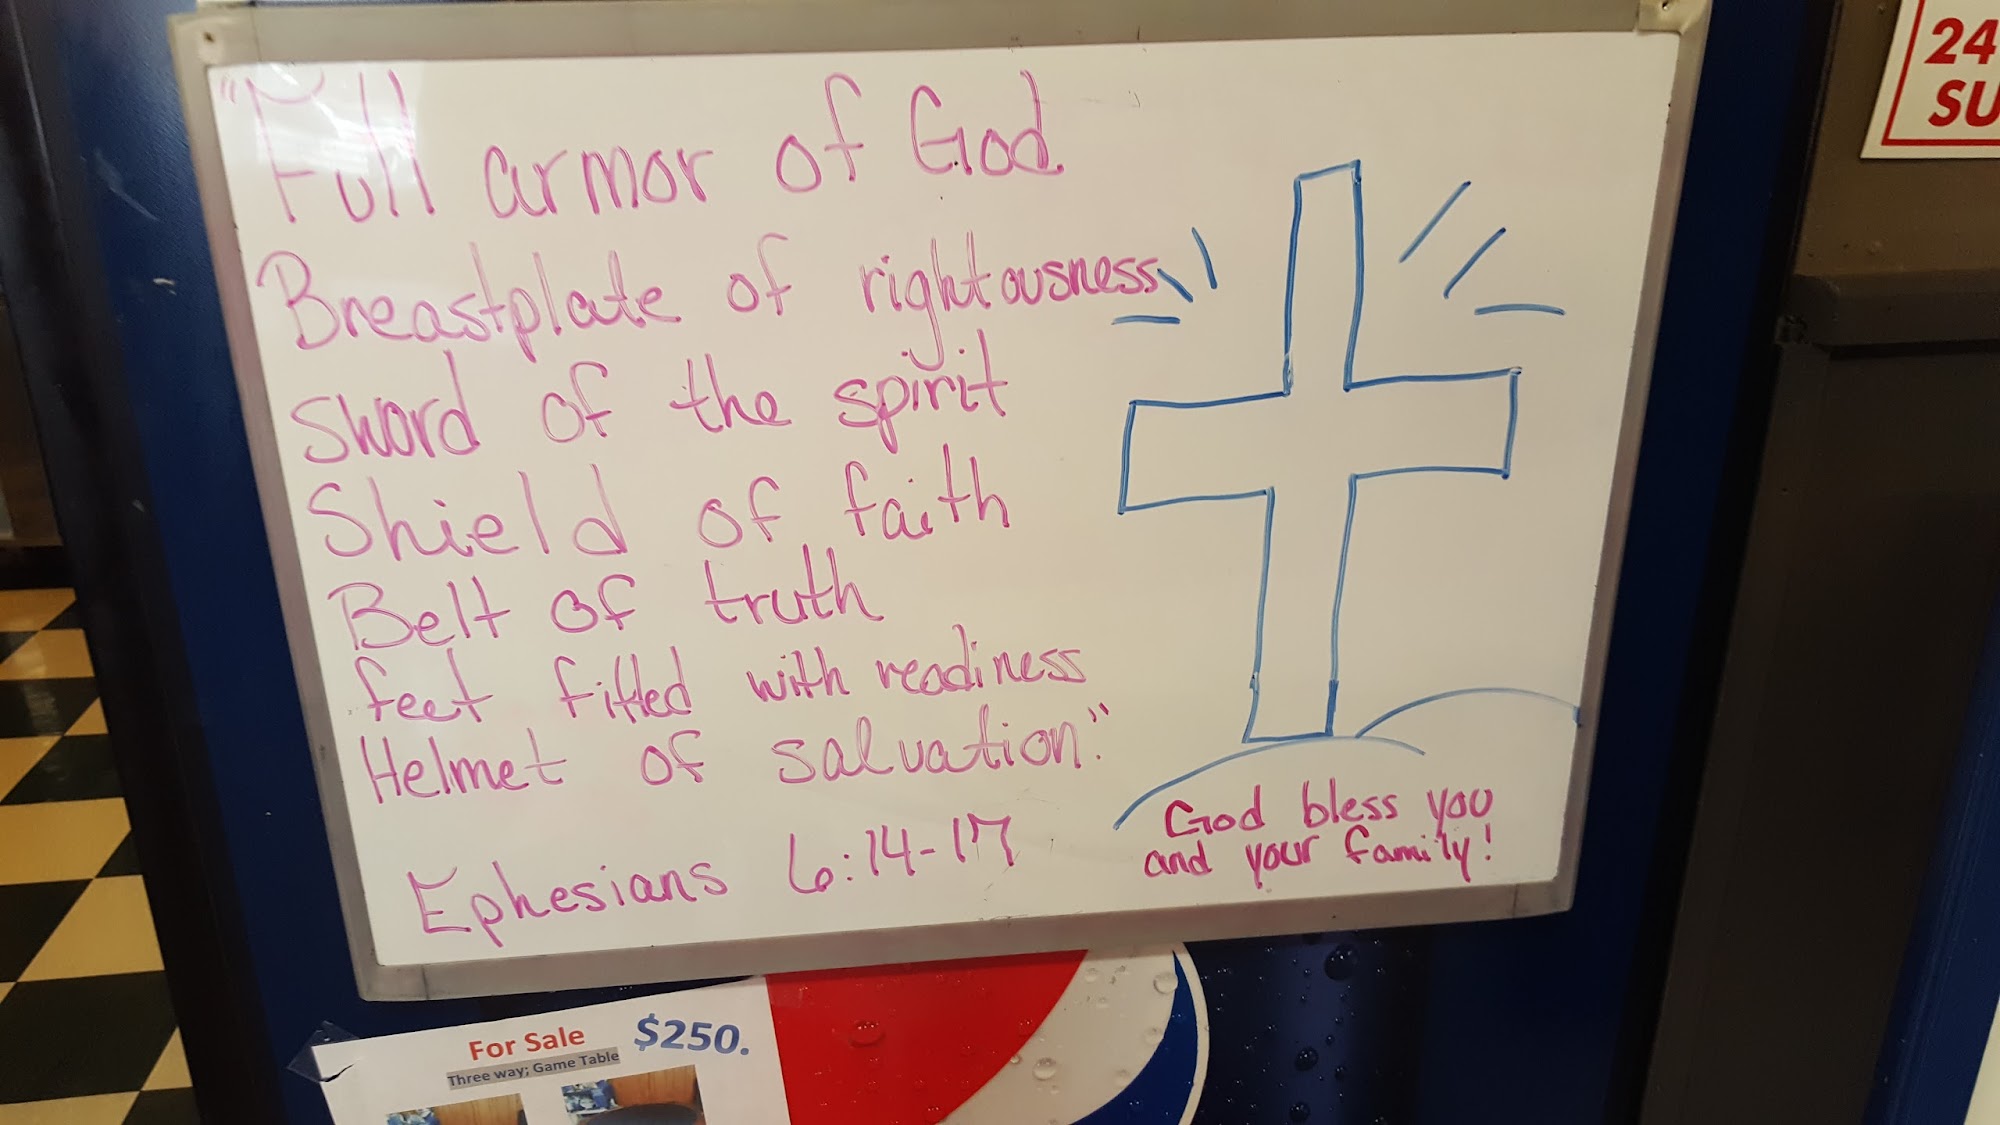 "Full armor of God
Breastplate of rightousness
sword of the spirit
Shield of faith
Belt of truth
feet fitted with readiness
Helmet of salvation."
Ephesians 6:14-17
God bless you
and your family!
24
SU
For Sale $250.
Three way; Game Table